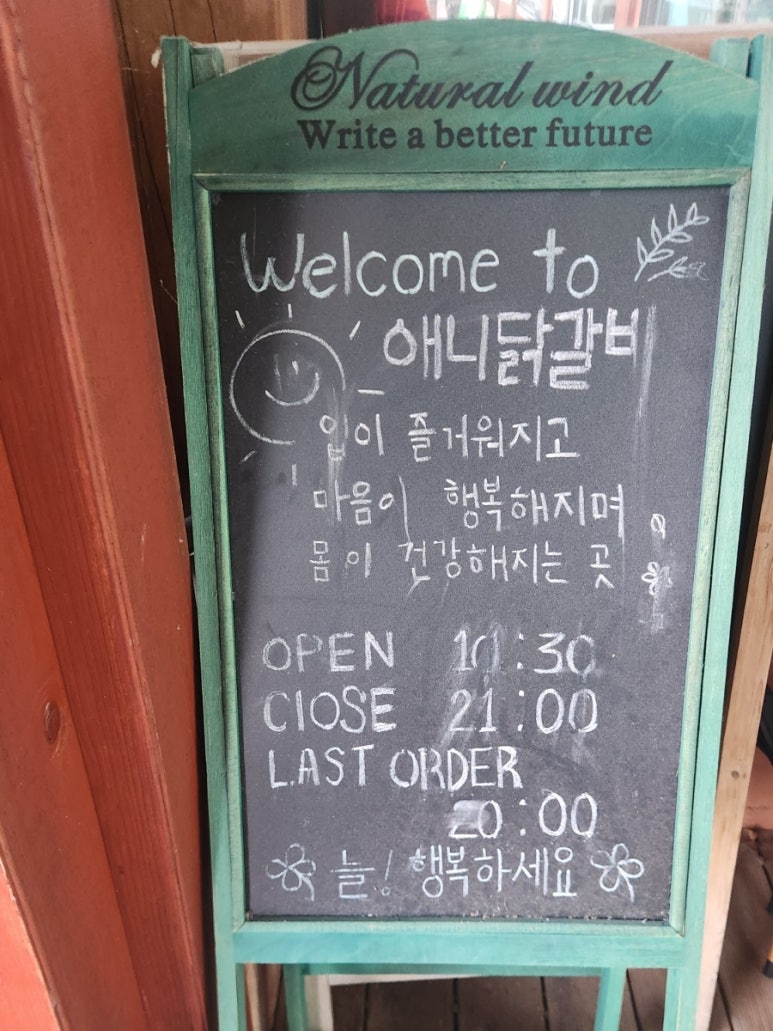 Natural wind
Write a better future
Welcome to
애니닭갈비
입이 즐거워지고
마음이 행복해지며
몸이 건강해지는 곳
OPEN 10:30
ClOSE 21:00
LAST ORDER
20:00
늘! 행복하세요